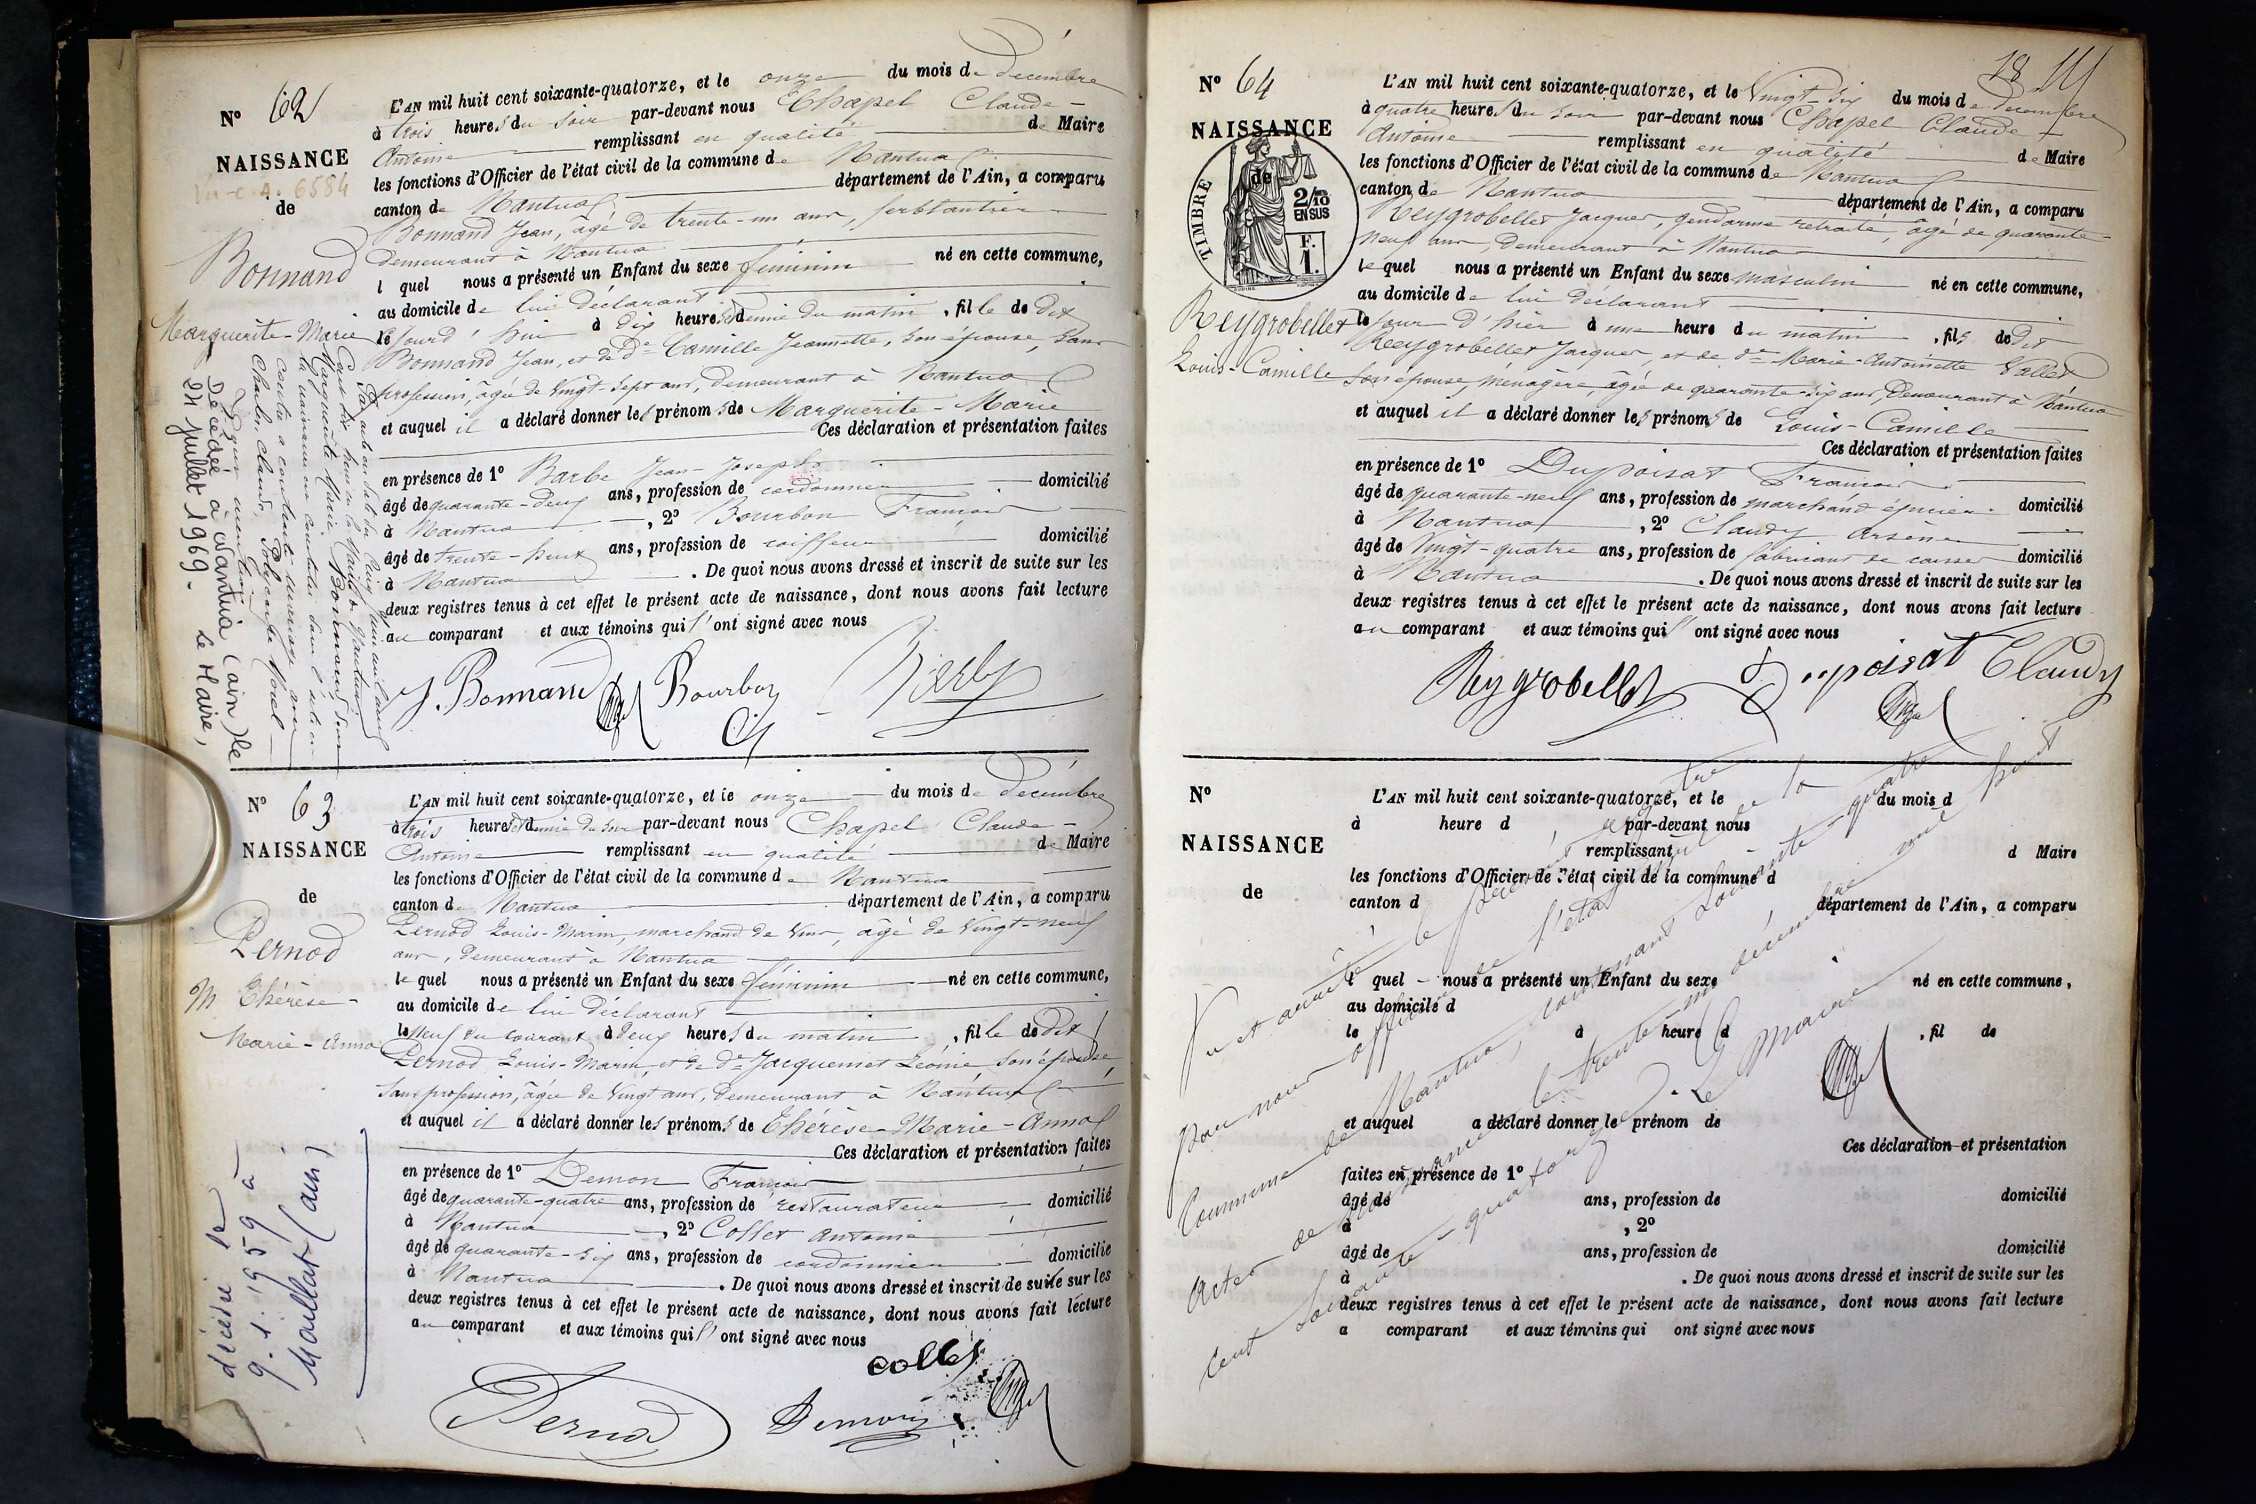 N° 62
NAISSANCE
de
Bonnand
Marguerite-Marie
L'AN mil huit cent soixante-quatorze, et le onze du mois de décembre
à trois heures du soir par-devant nous Chapel Claude-
Antoine remplissant en qualité de Maire
les fonctions d'Officier de l'état civil de la commune de Nantua
canton de Nantua département de l'Ain, a comparu
Bonnand Jean, âgé de trente-un ans, ferblantier
demeurant à Nantua
l quel nous a présenté un Enfant du sexe féminin né en cette commune,
au domicile de lui déclarant
le jourd'hui à dix heures et demie du matin, fille de dit
Bonnand Jean, et de De Camille Jeannette, son épouse, sans
profession, âgée de vingt-sept ans, demeurant à Nantua
et auquel il a déclaré donner les prénoms de Marguerite-Marie
Ces déclaration et présentation faites
en présence de 1° Barbe Jean-Joseph
âgé de quarante-deux ans, profession de cordonnier domicilié
à Nantua, 2° Bourbon François
âgé de trente-huit ans, profession de coiffeur domicilié
à Nantua. De quoi nous avons dressé et inscrit de suite sur les
deux registres tenus à cet effet le présent acte de naissance, dont nous avons fait lecture
au comparant et aux témoins qui l'ont signé avec nous
J. Bonnand Bourbon
Décédée à Nantua (Ain) le
24 juillet 1969. Le Maire,
N° 63
NAISSANCE
de
Pernod
M Thérèse-
Marie-Anna
L'AN mil huit cent soixante-quatorze, et le onze du mois de décembre
à trois heures et demie du soir par-devant nous Chapel Claude-
Antoine remplissant en qualité de Maire
les fonctions d'Officier de l'état civil de la commune de Nantua
canton de Nantua département de l'Ain, a comparu
Pernod Louis-Marin, marchand de vins, âgé de vingt-neuf
ans, demeurant à Nantua
le quel nous a présenté un Enfant du sexe féminin né en cette commune,
au domicile de lui déclarant
le neuf du courant à deux heures du matin, fille de dit
Pernod Louis-Marin, et de De Jacquemet Léonie, son épouse
sans profession, âgée de vingt ans, demeurant à Nantua
et auquel il a déclaré donner les prénoms de Thérèse-Marie-Anna
Ces déclaration et présentation faites
en présence de 1° Demon François
âgé de quarante-quatre ans, profession de restaurateur domicilié
à Nantua, 2° Collet Antoine
âgé de quarante-six ans, profession de cordonnier domicilié
à Nantua. De quoi nous avons dressé et inscrit de suite sur les
deux registres tenus à cet effet le présent acte de naissance, dont nous avons fait lecture
au comparant et aux témoins qui l'ont signé avec nous
collet
Pernod Demon
décédée le
9.1.1959 à
Maillat (ain)
N° 64
NAISSANCE
de
TIMBRE
2/10
EN SUS
F.
1.
Reygrobellet
Louis-Camille
18
L'AN mil huit cent soixante-quatorze, et le vingt-six du mois de décembre
à quatre heures du soir par-devant nous Chapel Claude-
Antoine remplissant en qualité de Maire
les fonctions d'Officier de l'état civil de la commune de Nantua
canton de Nantua département de l'Ain, a comparu
Reygrobellet Jacques, gendarme retraité, âgé de quarante-
neuf ans, demeurant à Nantua
le quel nous a présenté un Enfant du sexe masculin né en cette commune,
au domicile de lui déclarant
le jour d'hier à une heure du matin, fils de dit
Reygrobellet Jacques, et de De Marie-Antoinette Vallet
son épouse, ménagère, âgée de quarante-six ans, demeurant à Nantua
et auquel il a déclaré donner les prénoms de Louis-Camille
Ces déclaration et présentation faites
en présence de 1° Dupoisat François
âgé de quarante-neuf ans, profession de marchand épicier domicilié
à Nantua, 2° Claudy Arsène
âgé de vingt-quatre ans, profession de fabricant de caisses domicilié
à Nantua. De quoi nous avons dressé et inscrit de suite sur les
deux registres tenus à cet effet le présent acte de naissance, dont nous avons fait lecture
au comparant et aux témoins qui l'ont signé avec nous
Reygrobellet Dupoisat Claudy
N°
NAISSANCE
de
L'AN mil huit cent soixante-quatorze, et le du mois d
à heure d par-devant nous
remplissant d Maire
les fonctions d'Officier de l'état civil de la commune d
canton d département de l'Ain, a comparu
l quel nous a présenté un Enfant du sexe né en cette commune,
au domicile d
le à heure d, fil de
et auquel a déclaré donner le prénom de
Ces déclaration et présentation
faites en présence de 1°
âgé de ans, profession de domicilié
à, 2°
âgé de ans, profession de domicilié
à. De quoi nous avons dressé et inscrit de suite sur les
deux registres tenus à cet effet le présent acte de naissance, dont nous avons fait lecture
a comparant et aux témoins qui ont signé avec nous
Vu et arrêté le présent registre
par nous officier de l'état civil de la
Commune de Nantua, contenant soixante-quatre
actes de naissance le trente-un décembre mil huit
cent soixante-quatorze. Le Maire